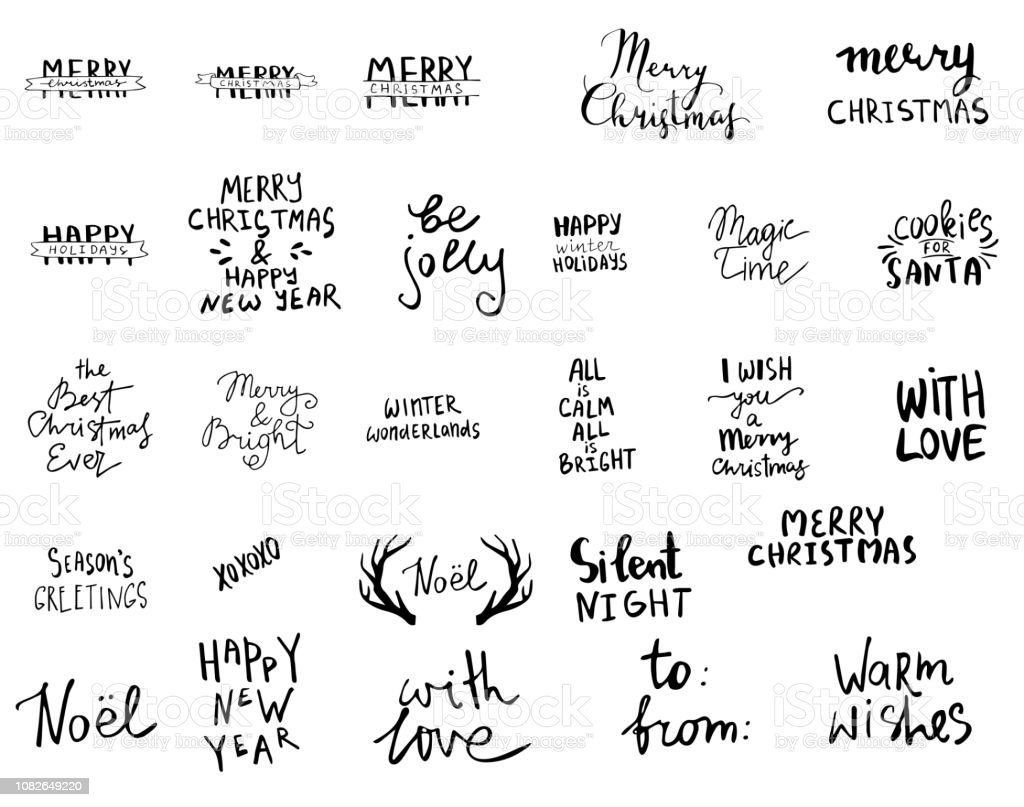 MERRY
christmas
MERRY
MERRY
CHRISTMAS
MERRY
MERRY
CHRISTMAS
MERRY
Merry
Christmas
merry
CHRISTMAS
HAPPY
HOLIDAYS
HAPPY
MERRY
CHRISTMAS
&
HAPPY
NEW YEAR
be
jolly
HAPPY
winter
HOLIDAYS
Magic
time
COOKIES
FOR
SANTA
the
Best
Christmas
Ever
Merry
&
Bright
WINTER
wonderlands
ALL
is
CALM
ALL
is
BRIGHT
I WISH
you
a
Merry
Christmas
WITH
LOVE
SEASON'S
GREETINGS
XOXOXO
Noël
Silent
NIGHT
MERRY
CHRISTMAS
Noël
HAPPY
NEW
YEAR
with
love
to:
from:
WARM
wishes
iStock
by Getty Images™
1082649220